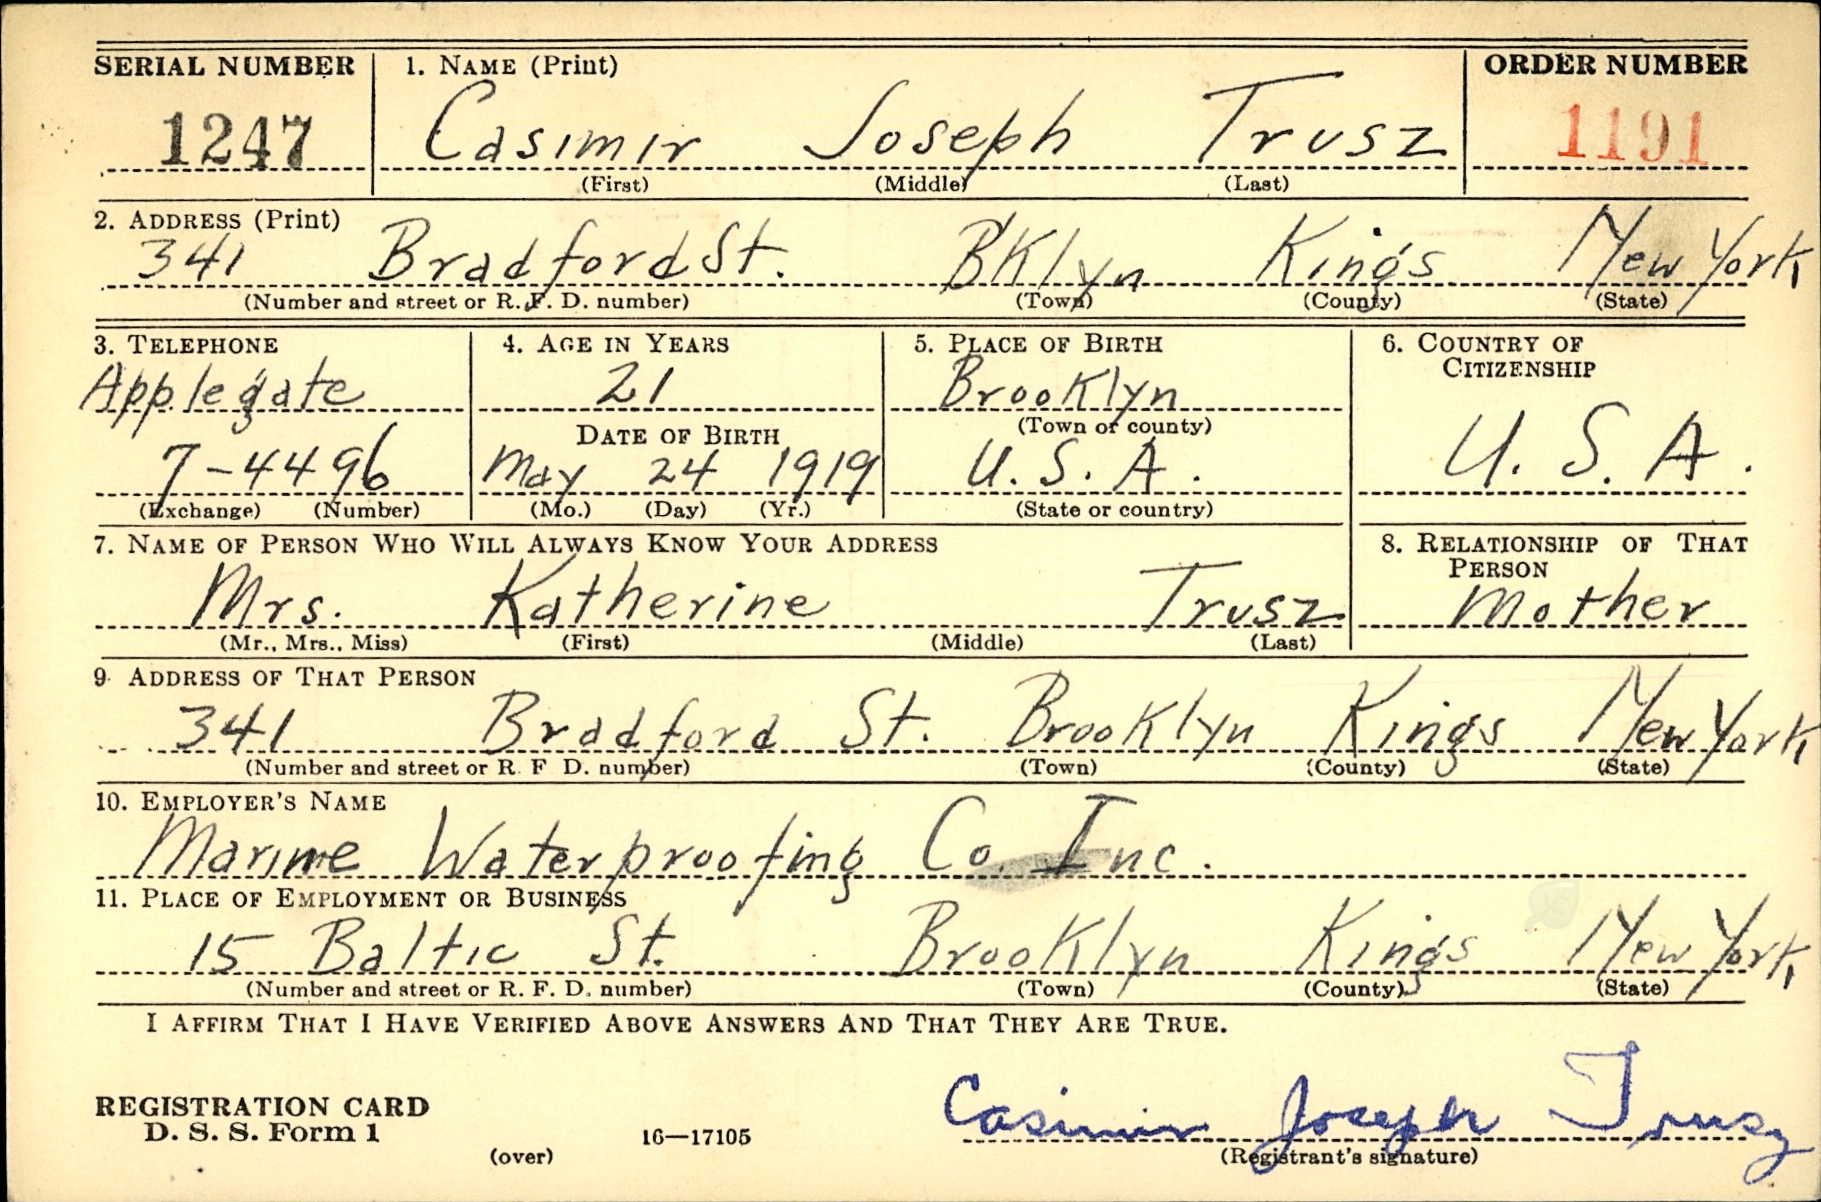 SERIAL NUMBER 1. NAME (Print) ORDER NUMBER
1247 Casimir Joseph Trusz 1191
(First) (Middle) (Last)
2. ADDRESS (Print)
341 Bradford St. BKlyn Kings New York
(Number and street or R. F. D. number) (Town) (County) (State)
3. TELEPHONE 4. AGE IN YEARS 5. PLACE OF BIRTH 6. COUNTRY OF
CITIZENSHIP
Applegate 21 Brooklyn
DATE OF BIRTH (Town or county)
7-4496 May 24 1919 U. S. A. U. S. A.
(Exchange) (Number) (Mo.) (Day) (Yr.) (State or country)
7. NAME OF PERSON WHO WILL ALWAYS KNOW YOUR ADDRESS 8. RELATIONSHIP OF THAT
PERSON
Mrs. Katherine Trusz Mother
(Mr., Mrs., Miss) (First) (Middle) (Last)
9. ADDRESS OF THAT PERSON
341 Bradford St. Brooklyn Kings New York
(Number and street or R. F. D. number) (Town) (County) (State)
10. EMPLOYER'S NAME
Marine Waterproofing Co. Inc.
11. PLACE OF EMPLOYMENT OR BUSINESS
15 Baltic St. Brooklyn Kings New York
(Number and street or R. F. D. number) (Town) (County) (State)
I AFFIRM THAT I HAVE VERIFIED ABOVE ANSWERS AND THAT THEY ARE TRUE.
REGISTRATION CARD
D. S. S. Form 1 16—17105 Casimir Joseph Trusz
(over) (Registrant's signature)